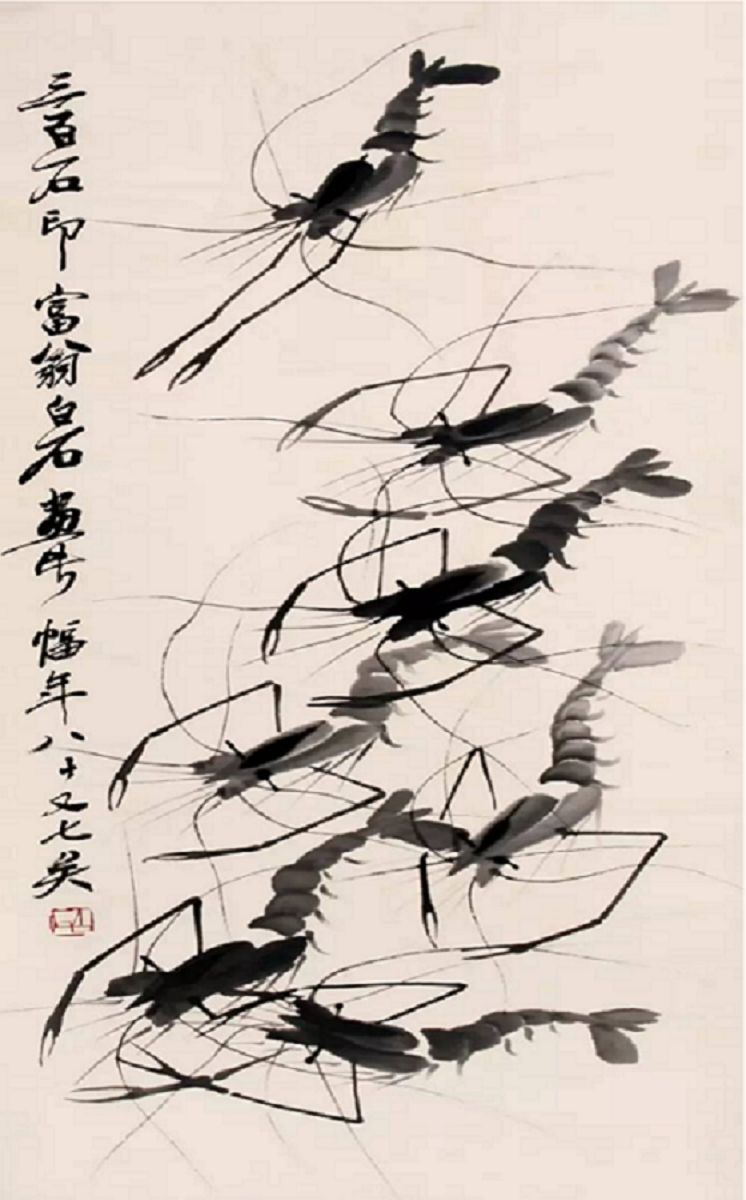 三百石印富翁白石画于幅年八十又七矣